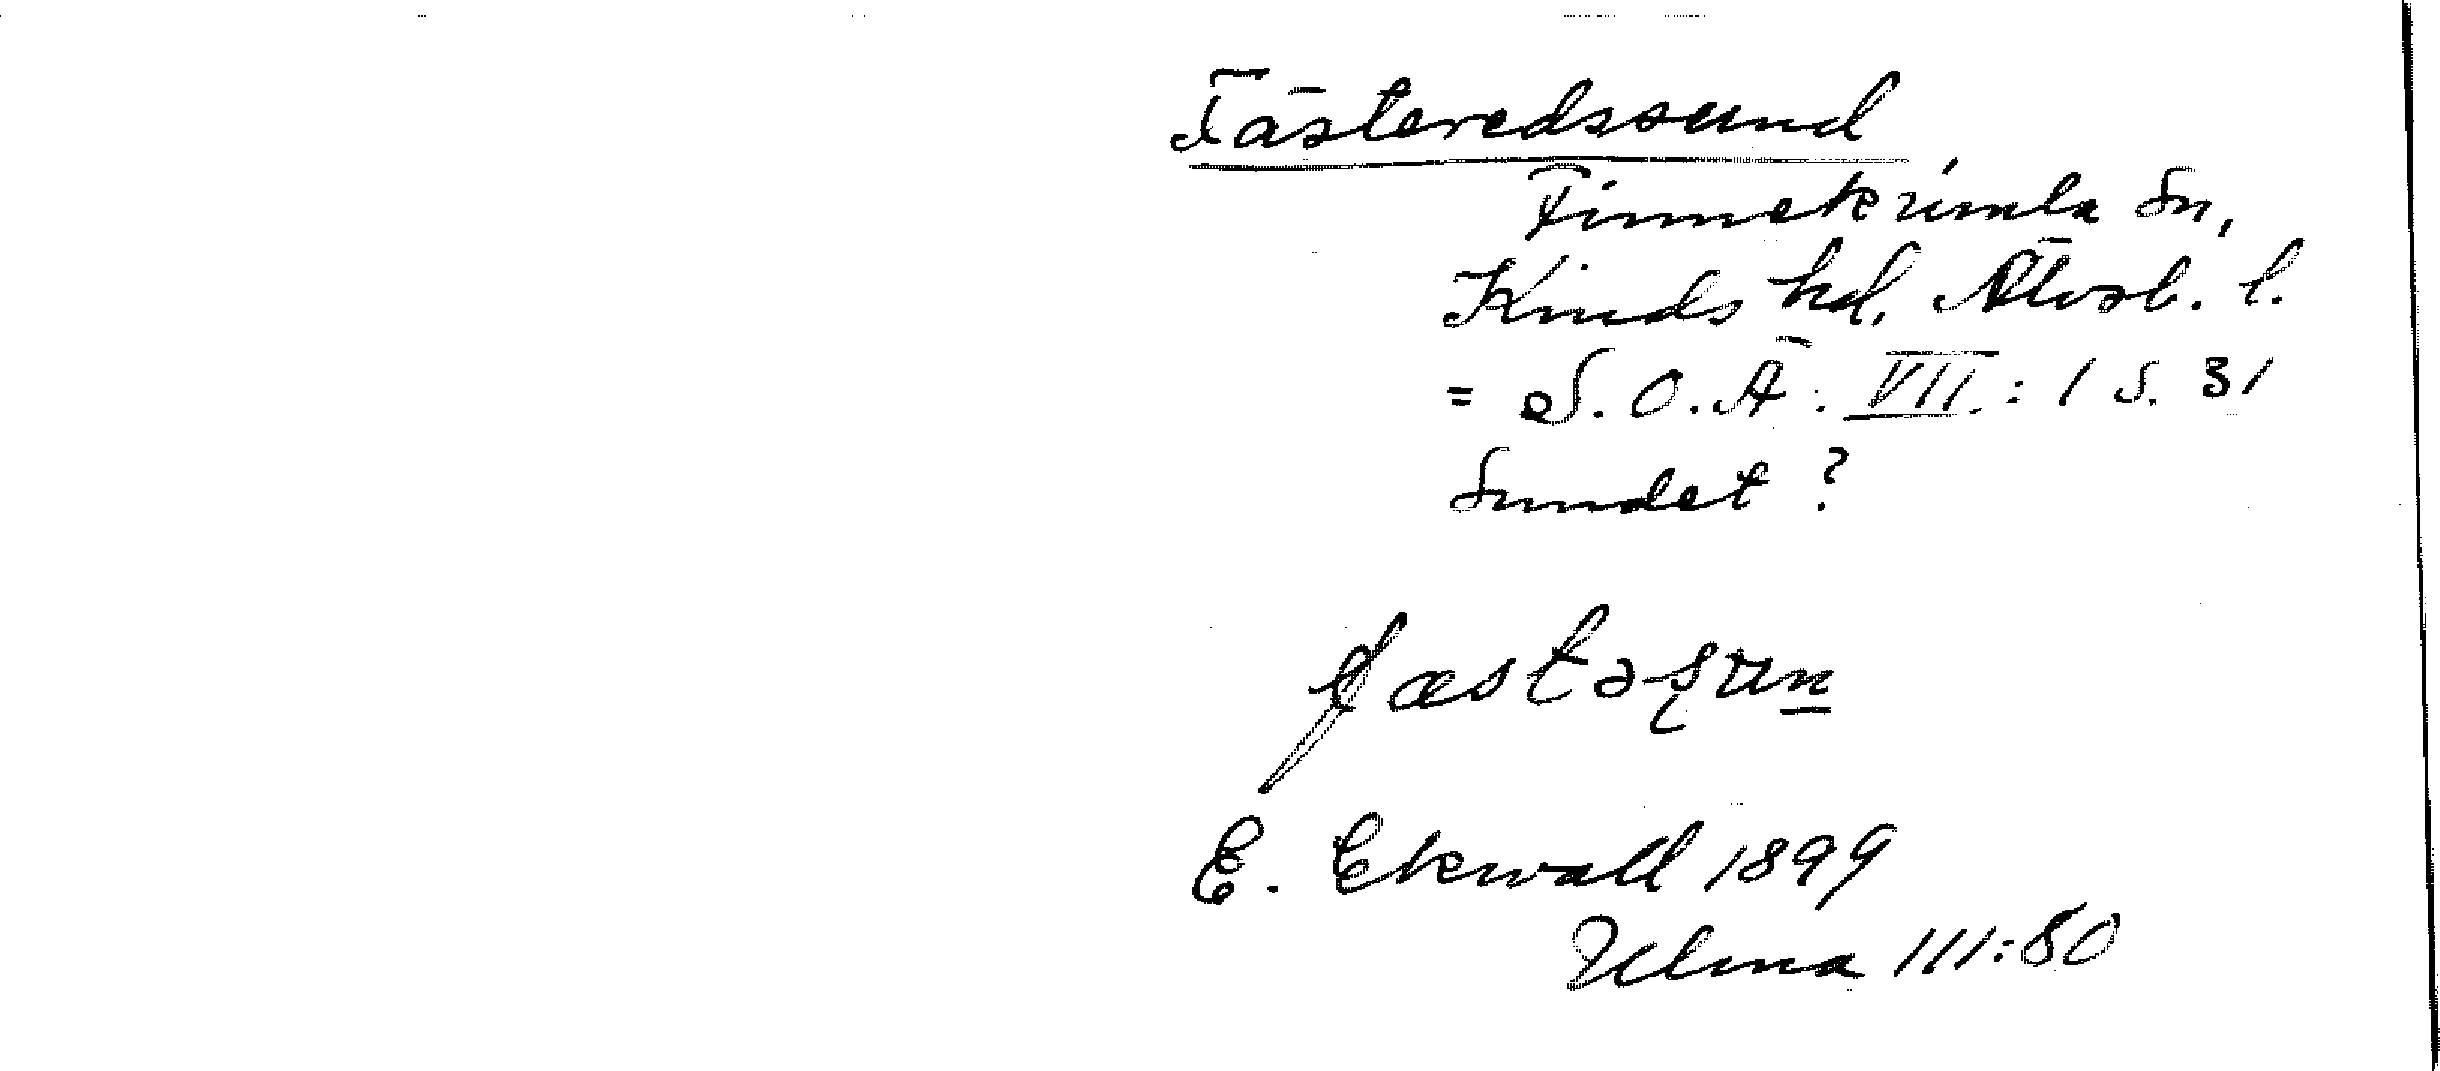 Fästeredssund
Finnekumla sn,
Kinds hd, Älvsb. l.
= S.O.Ä. VII:1 s. 31
Sundet?
fæstəʂun
E. Ekwall 1899
Ulma 111:80